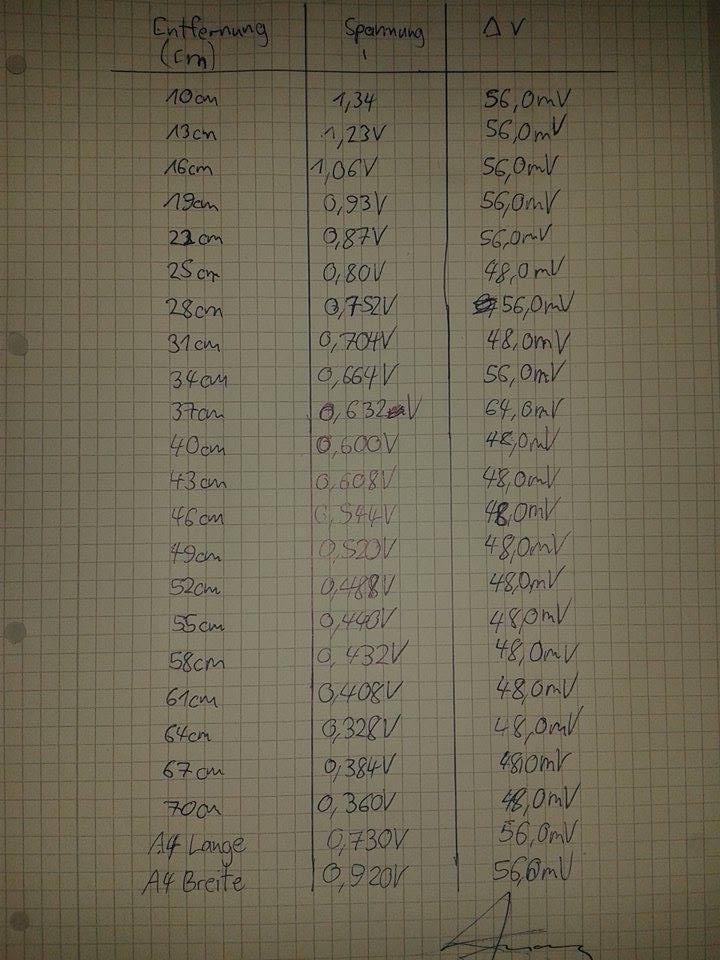 Entfernung Spannung Δ V
(cm)
10cm 1,34 56,0mV
13cm 1,23V 56,0mV
16cm 1,06V 56,0mV
19cm 0,93V 56,0mV
22cm 0,87V 56,0mV
25cm 0,80V 48,0mV
28cm 0,752V 56,0mV
31cm 0,704V 48,0mV
34cm 0,664V 56,0mV
37cm 0,632V 64,0mV
40cm 0,600V 48,0mV
43cm 0,608V 48,0mV
46cm 0,544V 48,0mV
49cm 0,520V 48,0mV
52cm 0,488V 48,0mV
55cm 0,440V 48,0mV
58cm 0,432V 48,0mV
61cm 0,408V 48,0mV
64cm 0,328V 48,0mV
67cm 0,384V 48,0mV
70cm 0,360V 48,0mV
A4 Länge 0,730V 56,0mV
A4 Breite 0,920V 56,0mV